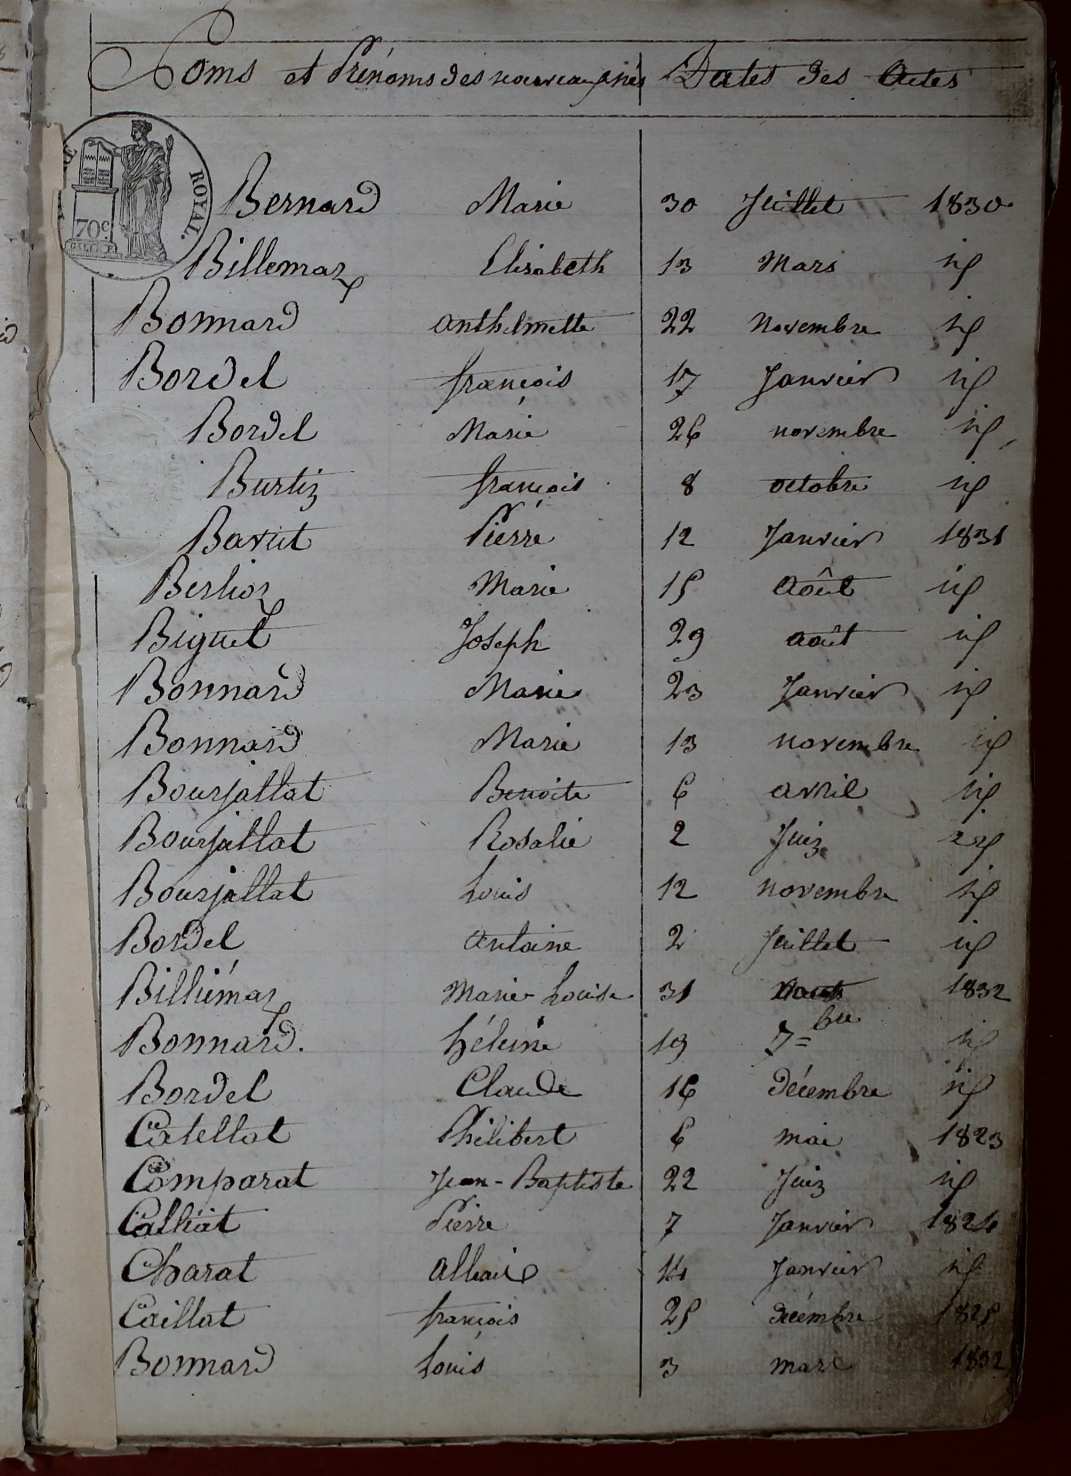 Noms et Prénoms des nouveaux nés Dates des Actes
ROYAL.
70c
Bernard Marie 30 Juillet 1830
Billemaz Elisabeth 13 Mars id
Bonnard anthelmette 22 Novembre id
Bordel françois 17 Janvier id
Bordel Marie 26 novembre id
Burtiz françois 8 octobre id
Barut Pierre 12 Janvier 1831
Berlioz Marie 15 Août id
Biguet Joseph 29 août id
Bonnard Marie 23 Janvier id
Bonnard Marie 13 novembre id
Bourjallat Benoite 6 avril id
Bourjallat Rosalie 2 Juin id
Bourjallat Louis 12 novembre id
Bordel Antoine 2 Juillet id
Billiémaz Marie-Louise 31 1832
Bonnard. hélène 19 7=bre id
Bordel Claude 16 Décembre id
Catellat Philibert 6 mai 1823
Comparat Jean-Baptiste 22 Juin id
Calliat Pierre 7 Janvier 1824
Charat 14 Janvier id
Caillat françois 25 décembre 1825
Bonnard Louis 3 mars 1832